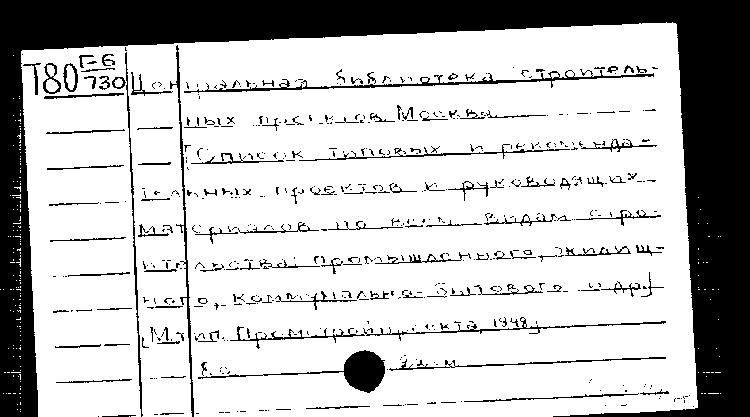 Т80 Г-6/730 Центральная библиотека строитель-
ных проектов. Москва.
[Список типовых и рекоменда-
тельных проектов и руководящих
материалов по всем видам стро-
ительства: промышленного, жилищ-
ного, коммунально-бытового и др.]
[М. тип. Промстройпроекта, 1948]
8 с. 22 см